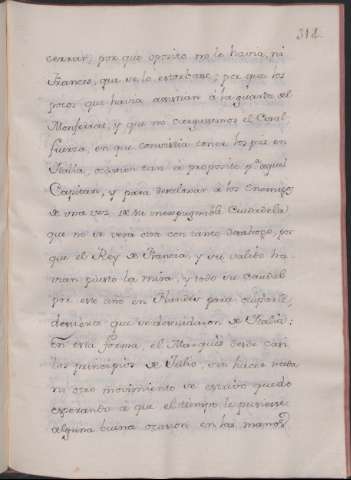 314
cerrar; por que oposito no le havia, ni
Frances, que se lo estorbase; por que los
pocos que havia asistian a la guarda del
Monferrat, y que no cargasemos el Casal
fuerza, en que consistia tener los pies en
Italia, ocasion tan a proposito pª aquel
Capitan, y para desalojar a los Enemigos
de una vez de su inexpugnable Ciudadela
que no se verá otra con tanto desahogo, por
que el Rey de Francia, y su valido ha-
vian puesto la mira, y todo su caudal
por este año en Flandes para
de Italia:
En esta forma, el Marques desde casi
los principios de Julio, sin hacer nada
ni otro movimiento se estubo quedo
esperando á que el tiempo le pusiese
alguna buena ocasion en las manos